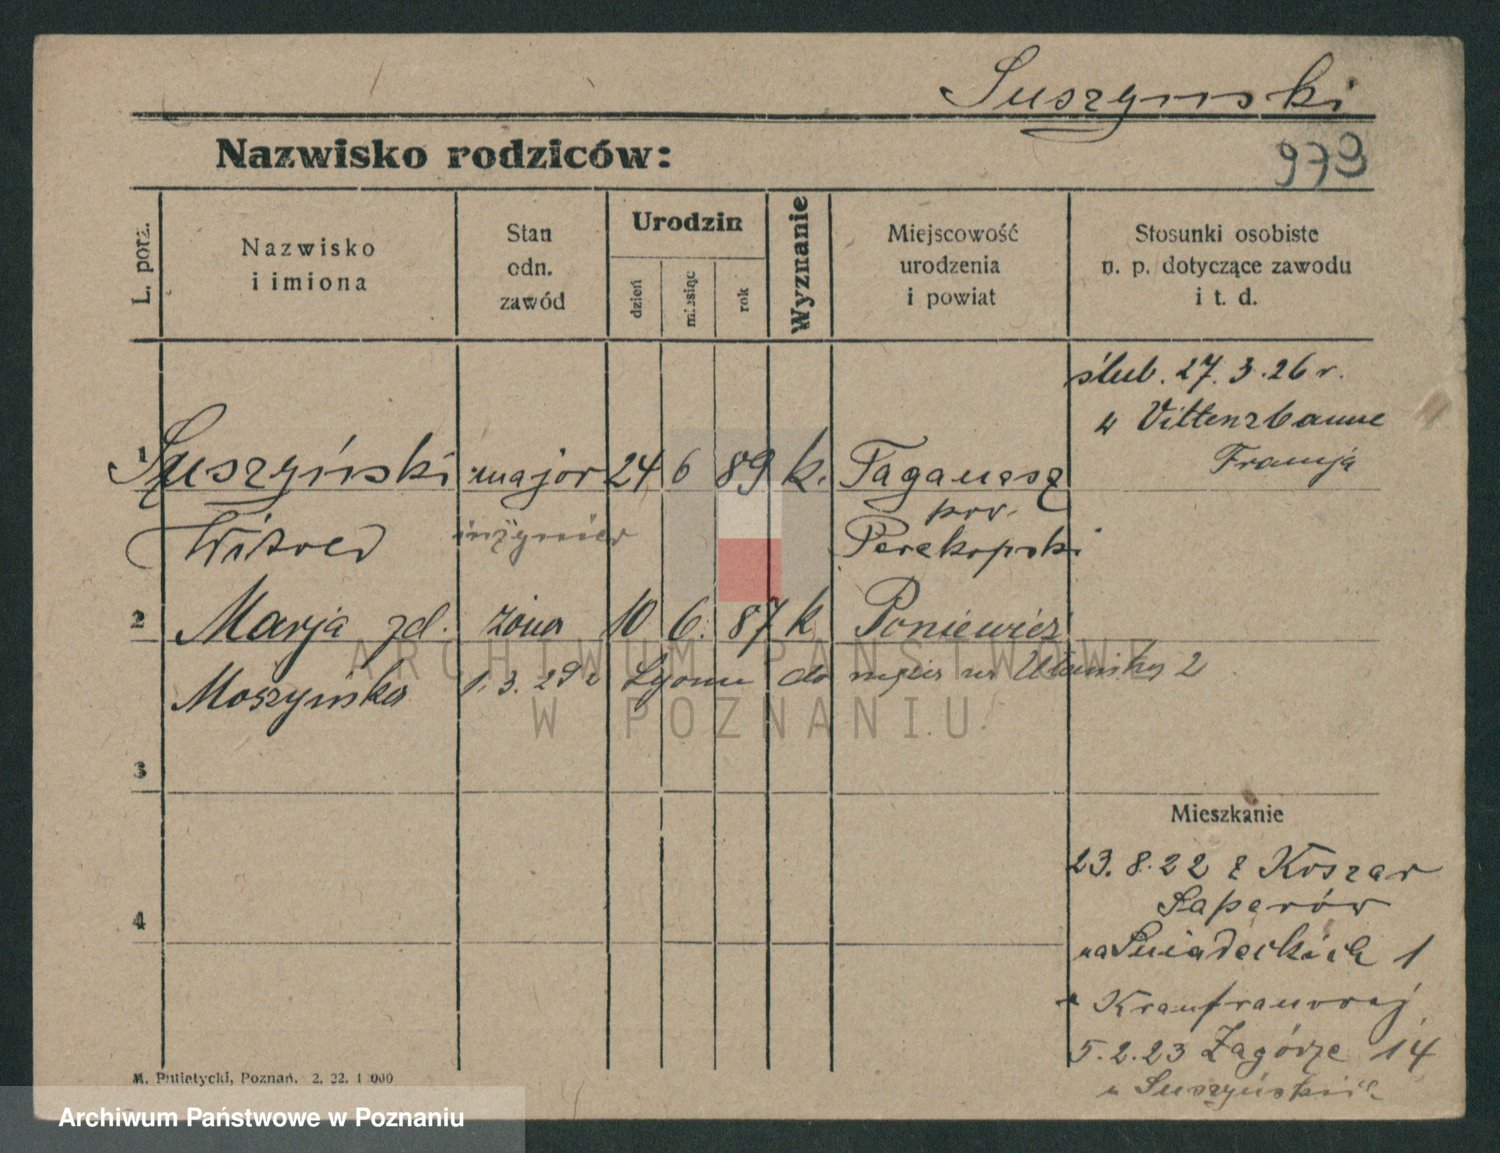 Suszynski
Nazwisko rodziców:
973
L. porz.
Nazwisko
i imiona
Stan
odn.
zawód
Urodzin
dzień
miesiąc
rok
Wyznanie
Miejscowość
urodzenia
i powiat
Stosunki osobiste
n. p. dotyczące zawodu
i t. d.
ślub. 27. 3. 26 r.
w
Francja
1 Suszyński major 24 6 89 k.
pow.
Witold inżynier Perekopski
2 Marja zd. żona 10 6. 87 k Poniewież
Moszyńska 1. 3. 29 z Lyonu do męża na 2
3
4
Mieszkanie
23. 8. 22 z Koszar
Saperów
na Śniadeckich 1
5. 2. 23 Zagórze 14
u Suszyńskich
M. Putiatycki, Poznań. 2. 22. 1 000
ARCHIWUM PAŃSTWOWE
W POZNANIU
Archiwum Państwowe w Poznaniu